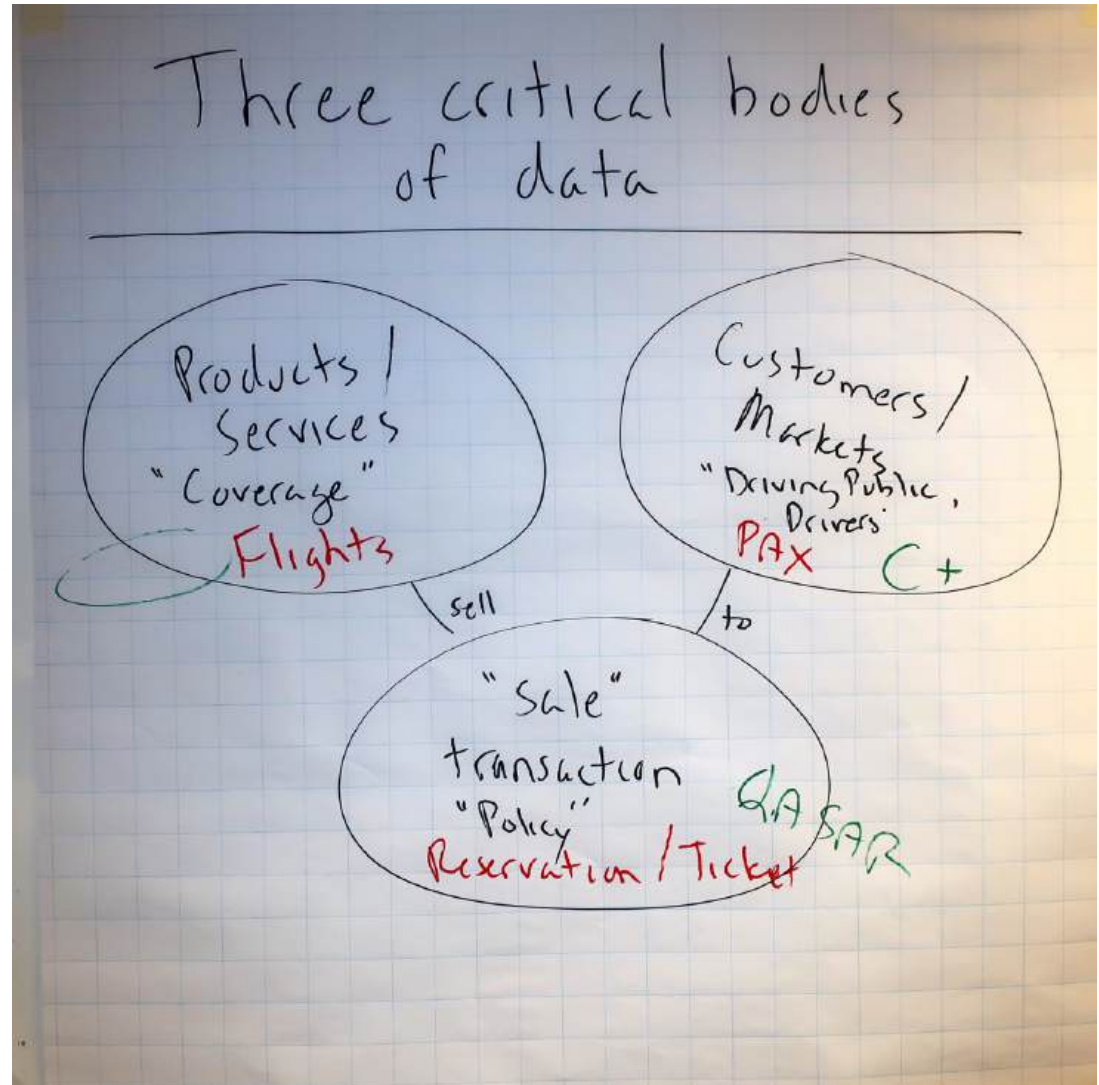 Three critical bodies
of data
Products /
Services
"Coverage"
Flights
Customers /
Markets
"Driving Public,
Drivers
PAX C+
sell
to
"Sale"
transaction
"Policy"
QASAR
Reservation / Ticket